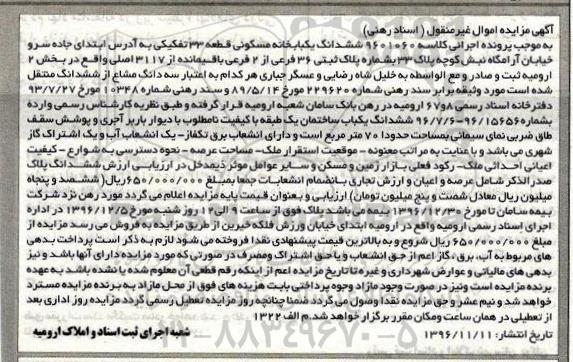 آگهی مزایده اموال غیرمنقول ( اسناد رهنی)
به موجب پرونده اجرائی کلاسه ۹۶۰۱۰۶۰ ششدانگ یکبابخانه مسکونی قطعه ۳۳ تفکیکی به آدرس ابتدای جاده سرو
خیابان آرامگاه نبش کوچه پلاک ۳۳ بشماره پلاک ثبتی ۳۶ فرعی از ۲ فرعی باقیمانده از ۳۱۱۷ اصلی واقع در بخش ۲
ارومیه ثبت و صادر و مع الواسطه به خلیل شاه رضایی و عسگر جباری هر کدام به اعتبار سه دانگ مشاع از ششدانگ منتقل
شده است مورد وثیقه برابر سند رهنی شماره ۲۲۹۶۲۰ مورخ ۸۹/۵/۱۴ و سند رهنی شماره ۱۰۳۴۸ مورخ ۹۳/۷/۲۷
دفترخانه اسناد رسمی ۸ و ۶۷ ارومیه در رهن بانک سامان شعبه ارومیه قرار گرفته و طبق نظریه کارشناس رسمی وارده
بشماره ۹۶/۱۵۶۵۶-۹۶/۷/۶ ششدانگ یکباب ساختمان یک طبقه با کیفیت نامطلوب با دیوار باربر آجری و پوشش سقف
طاق ضربی نمای سیمانی بمساحت حدودا ۷۰ متر مربع است و دارای انشعاب برق تکفاز- یک انشعاب آب و یک اشتراک گاز
شهری می باشد و با عنایت به مراتب معنونه - موقعیت استقرار ملک- مساحت عرصه - نحوه دسترسی به شوارع - کیفیت
اعیانی احداثی ملک- رکود فعلی بازار زمین و مسکن و سایر عوامل موثر ذیمدخل در ارزیابی ارزش ششدانگ پلاک
صدرالذکر شامل عرصه و اعیان و ارزش تجاری بانضمام انشعابات جمعا بمبلغ ۶۵۰/۰۰۰/۰۰۰ ریال( ششصد و پنجاه
میلیون ریال معادل شصت و پنج میلیون تومان) ارزیابی و بعنوان قیمت پایه مزایده اعلام می گردد مورد رهن نزد شرکت
بیمه سامان تا مورخ ۱۳۹۶/۱۲/۳۰ بیمه می باشد پلاک فوق از ساعت ۹ الی ۱۲ روز شنبه مورخ ۱۳۹۶/۱۲/۵ در اداره
اجرای اسناد رسمی ارومیه واقع در ارومیه ابتدای خیابان ورزش فلکه خیرین از طریق مزایده به فروش می رسد مزایده از
مبلغ ۶۵۰/۰۰۰/۰۰۰ ریال شروع و به بالاترین قیمت پیشنهادی نقدا فروخته می شود لازم به ذکر است پرداخت بدهی
های مربوط به آب، برق، گاز اعم از حق انشعاب و یا حق اشتراک ومصرف در صورتی که مورد مزایده دارای آنها باشد و نیز
بدهی های مالیاتی و عوارض شهرداری و غیره تا تاریخ مزایده اعم از اینکه رقم قطعی آن معلوم شده یا نشده باشد به عهده
برنده مزایده است ونیز در صورت وجود مازاد وجوه پرداختی بابت هزینه های فوق از محل مازاد به برنده مزایده مسترد
خواهد شد و نیم عشر و حق مزایده نقدا وصول می گردد ضمنا چنانچه روز مزایده تعطیل رسمی گردد مزایده روز اداری بعد
از تعطیلی در همان ساعت ومکان مقرر برگزار خواهد شد.م الف ۱۳۲۲
تاریخ انتشار: ۱۳۹۶/۱۱/۱۱
شعبه اجرای ثبت اسناد و املاک ارومیه
۰۲۱-۸۸۳۴۹۶۷۰-۵